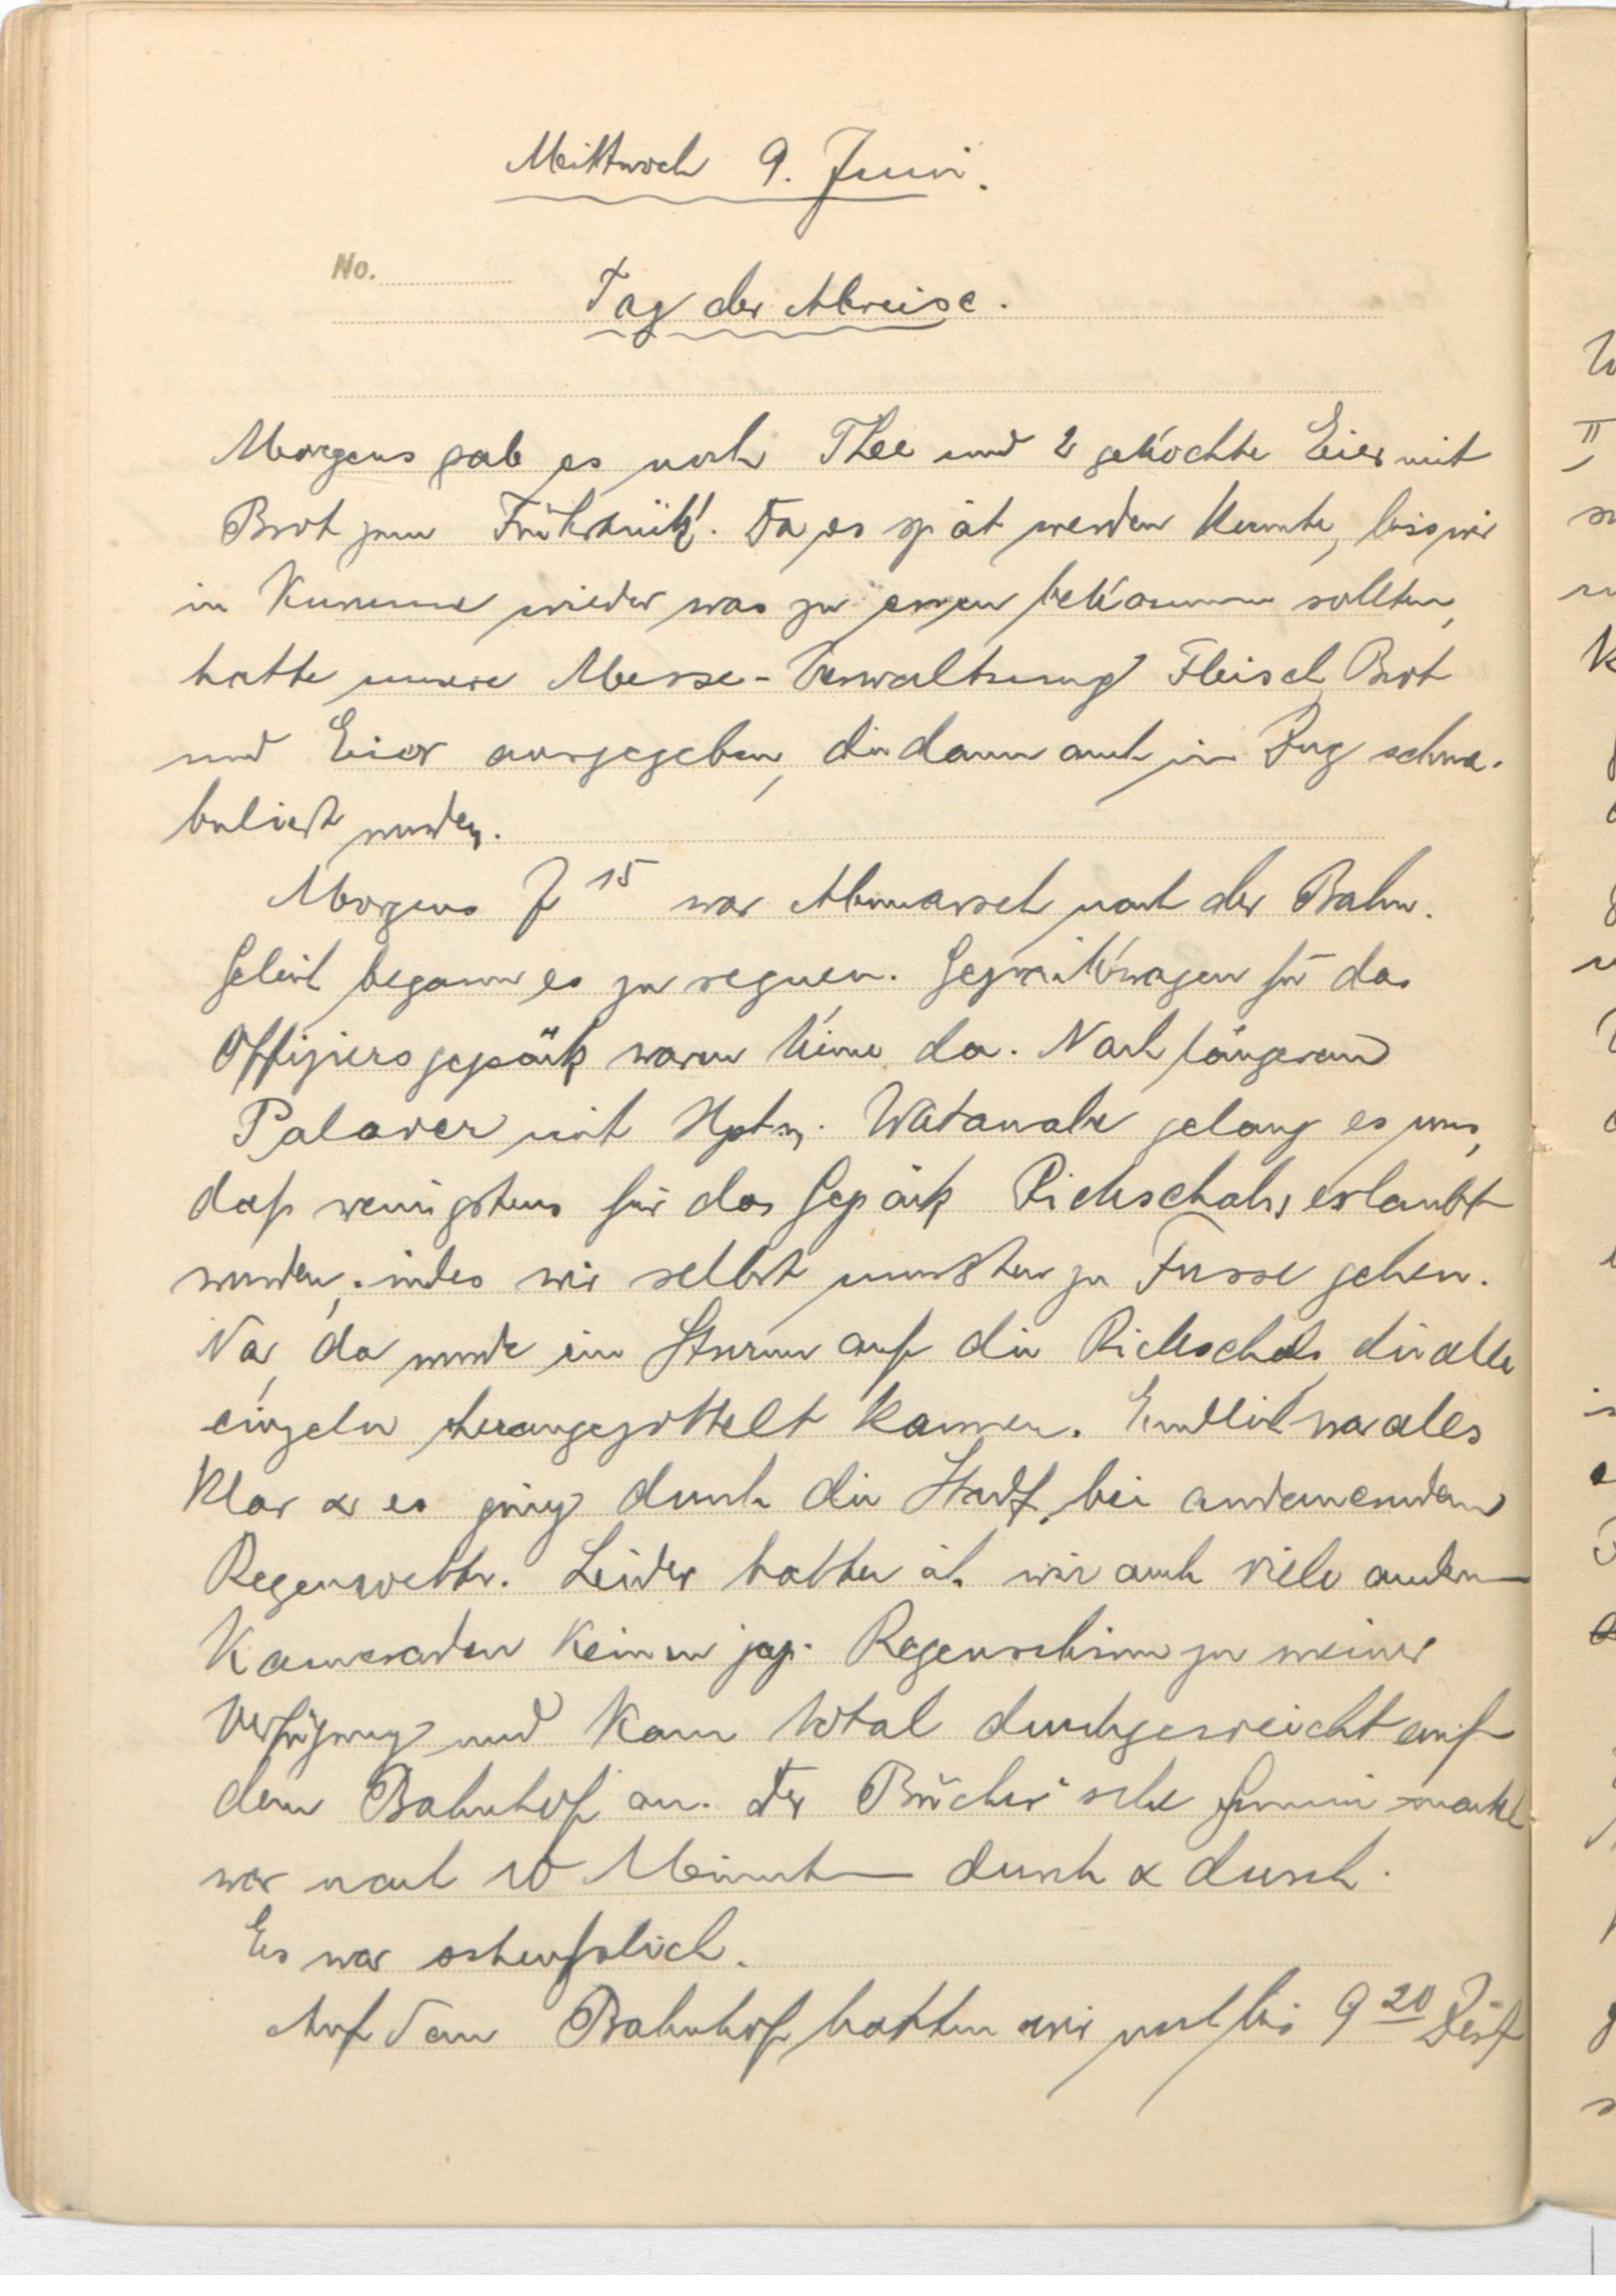 Mittwoch 9. Juni.
No.
Tag der Abreise.
Morgens gab es noch Thee und 2 gekochte Eier mit
Brot zum Frühstück. Da es spät werden konnte, bis wir
in Kurume wieder was zu essen bekommen sollten,
hatte unsere Messe-Verwaltung Fleisch, Brot
und Eier ausgegeben, die dann auch im Zug schna-
buliert wurden.
Morgens 7 15 war Abmarsch nach der Bahn.
Gleich begann es zu regnen. Gepäckwagen für das
Offiziersgepäck waren keine da. Nach längerem
Palaver mit Hptm. Watanabe gelang es uns,
daß wenigstens für das Gepäck Rickschahs erlaubt
wurden, indes wir selbst mussten zu Fusse gehen.
Na, da wurde ein Sturm auf die Rickschahs, die alle
einzeln herangezottelt kamen. Endlich war alles
klar & es ging durch die Stadt, bei andauerndem
Regenwetter. Leider hatte ich wie auch viele andern
Kameraden keinen jap. Regenschirm zu meiner
Verfügung und kam total durchgeweicht auf
dem Bahnhof an. Der Gummi
war nach 10 Minuten durch & durch.
Es war scheußlich.
Auf dem Bahnhof hatten wir noch bis 9 20 Zeit